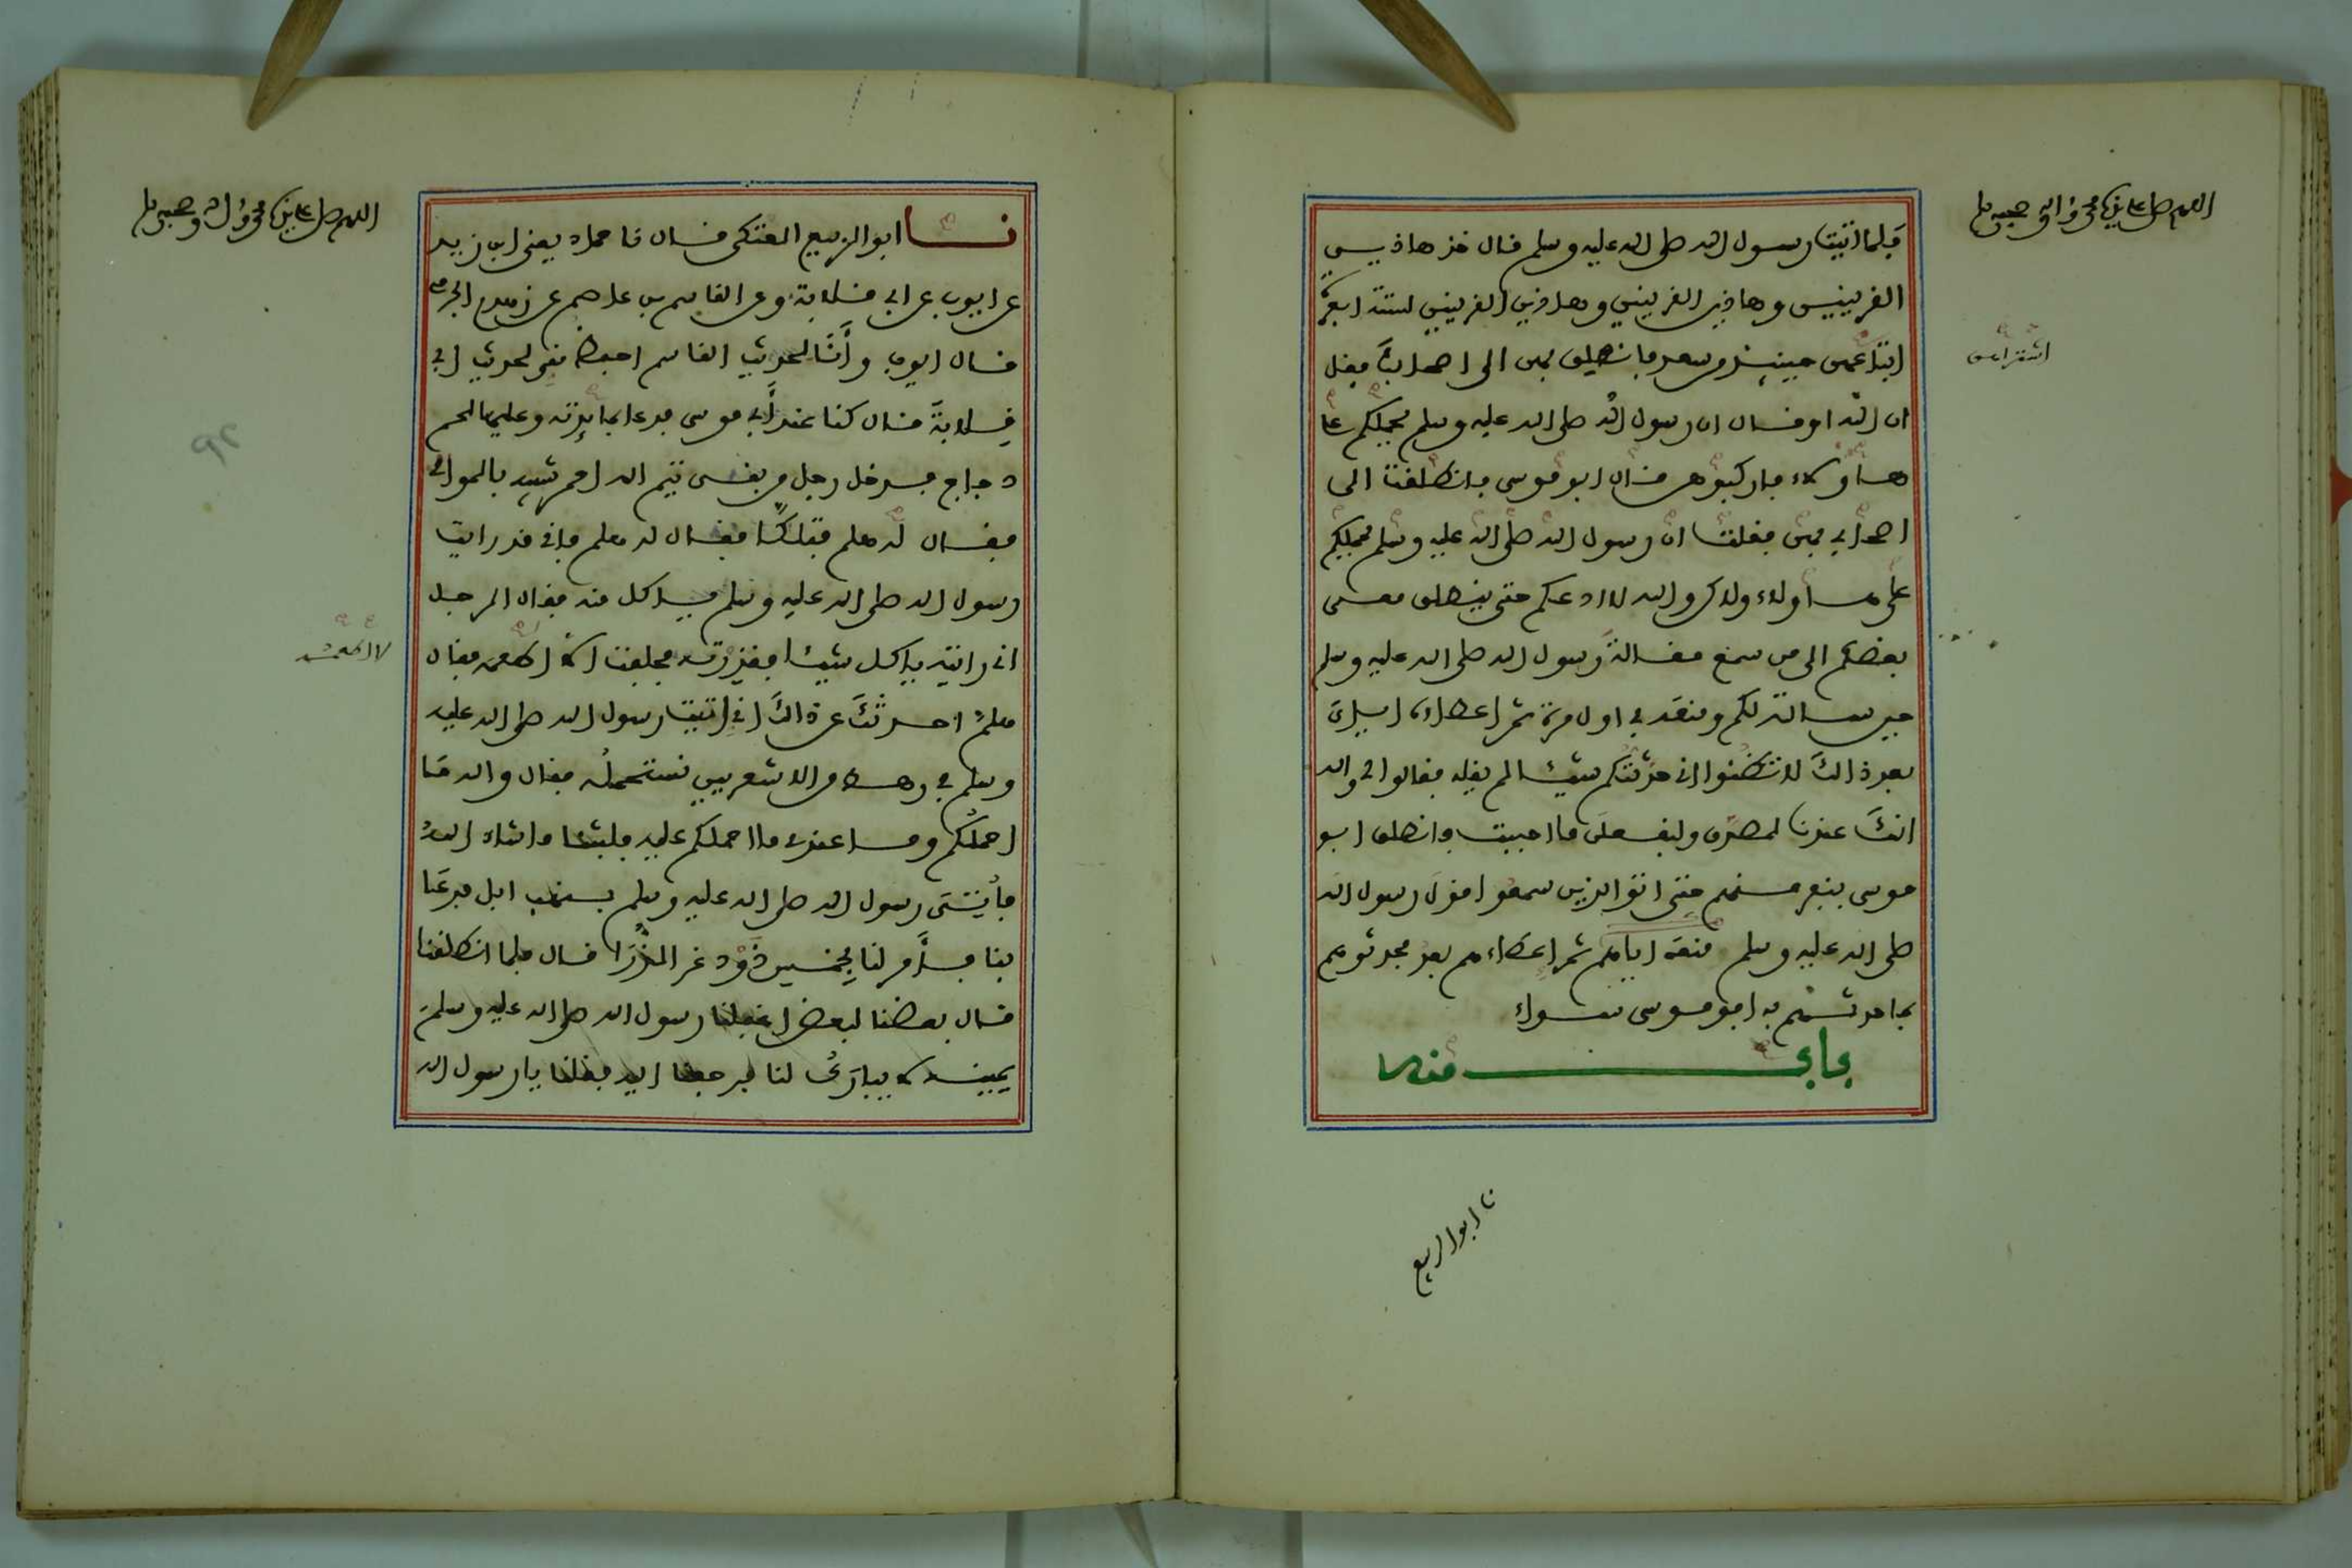 اللهم صل على سيدنا محمد وآله وصحبه وسلم
فلما اتيت رسول الله صلى الله عليه وسلم قال خذ هاذين
القرينين وهاذين القرينين وهاذين القرينين لستة ابعرة
ابتاعهن حينئذ من سعد فانطلق بهن الى اصحابك فقل
اشتراهن
ان الله او قال ان رسول الله صلى الله عليه وسلم يحملكم على
هاؤلاء فاركبوهن قال ابو موسى فانطلقت الى
اصحابي بهن فقلت ان رسول الله صلى الله عليه وسلم يحملكم
على هاؤلاء ولاكن والله لا ادعكم حتى ينطلق معي
بعضكم الى من سمع مقالة رسول الله صلى الله عليه وسلم
حين سالته لكم ومنعه في اول مرة ثم اعطاءه اياي
بعد ذالك لا تظنوا اني حدثتكم شيئا لم يقله فقالوا لي والله
انك عندنا لمصدق ولنفعلن ما احببت فانطلق ابو
موسى بنفر منهم حتى اتوا الذين سمعوا قول رسول الله
صلى الله عليه وسلم منعه اياهم ثم اعطاءهم بعد فحدثوهم
بما حدثهم به ابو موسى سواء
باب منه
نا ابو الربيع
اللهم صل على سيدنا محمد وآله وصحبه وسلم
نا ابو الربيع العتكي قال نا حماد يعني ابن زيد
عن ايوب عن ابي قلابة وعن القاسم بن عاصم عن زهدم الجرمي
قال ايوب وأنا لحديث القاسم احفظ مني لحديث ابي
قلابة قال كنا عند أبي موسى فدعا بمائدته وعليها لحم
دجاج فدخل رجل من بني تيم الله احمر شبيه بالموالي
فقال له هلم فتلكأ فقال له هلم فاني قد رايت
رسول الله صلى الله عليه وسلم ياكل منه فقال الرجل
اني رايته ياكل شيئا فقذرته فحلفت ان لا اطعمه فقال
لا اطعمه
هلم احدثك عن ذالك اني اتيت رسول الله صلى الله عليه
وسلم في رهط من الاشعريين نستحمله فقال والله ما
احملكم وما عندي ما احملكم عليه فلبثنا ما شاء الله
فأتى رسول الله صلى الله عليه وسلم بنهب ابل فدعا
بنا فأمر لنا بخمس ذود غر الذرا قال فلما انطلقنا
قال بعضنا لبعض اغفلنا رسول الله صلى الله عليه وسلم
يمينه لا يبارك لنا فرجعنا اليه فقلنا يا رسول الله